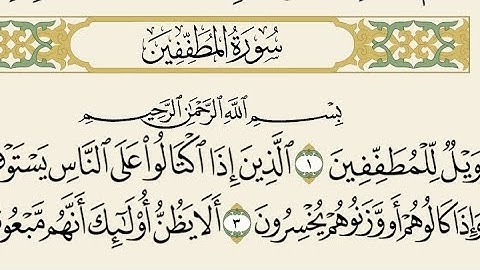 سُورَةُ المُطَفِّفِينَ
بِسْمِ اللَّهِ الرَّحْمَٰنِ الرَّحِيمِ
وَيْلٌ لِّلْمُطَفِّفِينَ ١ الَّذِينَ إِذَا اكْتَالُوا عَلَى النَّاسِ يَسْتَوْفُ
وَإِذَا كَالُوهُمْ أَو وَّزَنُوهُمْ يُخْسِرُونَ ٣ أَلَا يَظُنُّ أُولَٰئِكَ أَنَّهُم مَّبْعُو